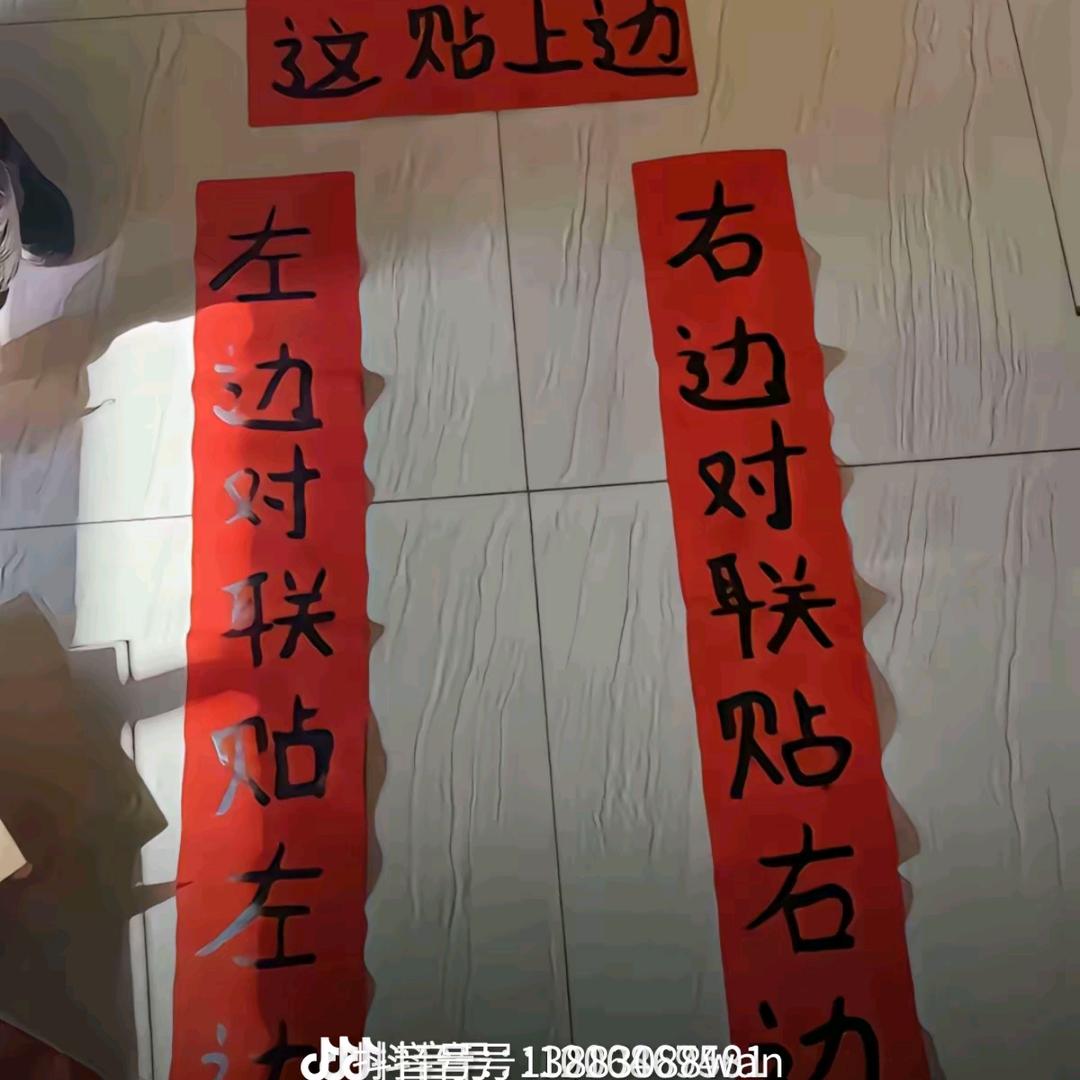 这贴上边
左边对联贴左边
右边对联贴右边
抖音号